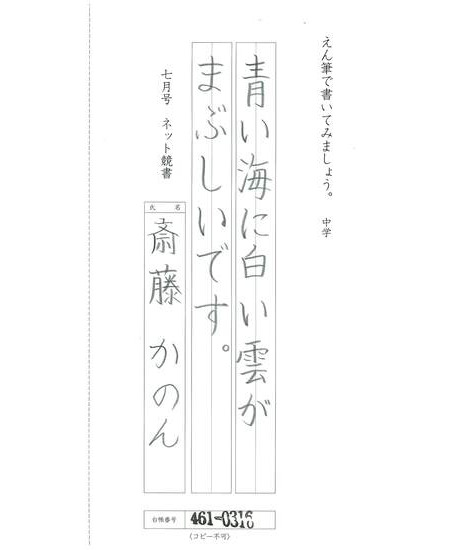 えん筆で書いてみましょう。 中学
青い海に白い雲が
まぶしいです。
七月号 ネット競書
氏 名
斎藤 かのん
台帳番号 461-0316
(コピー不可)